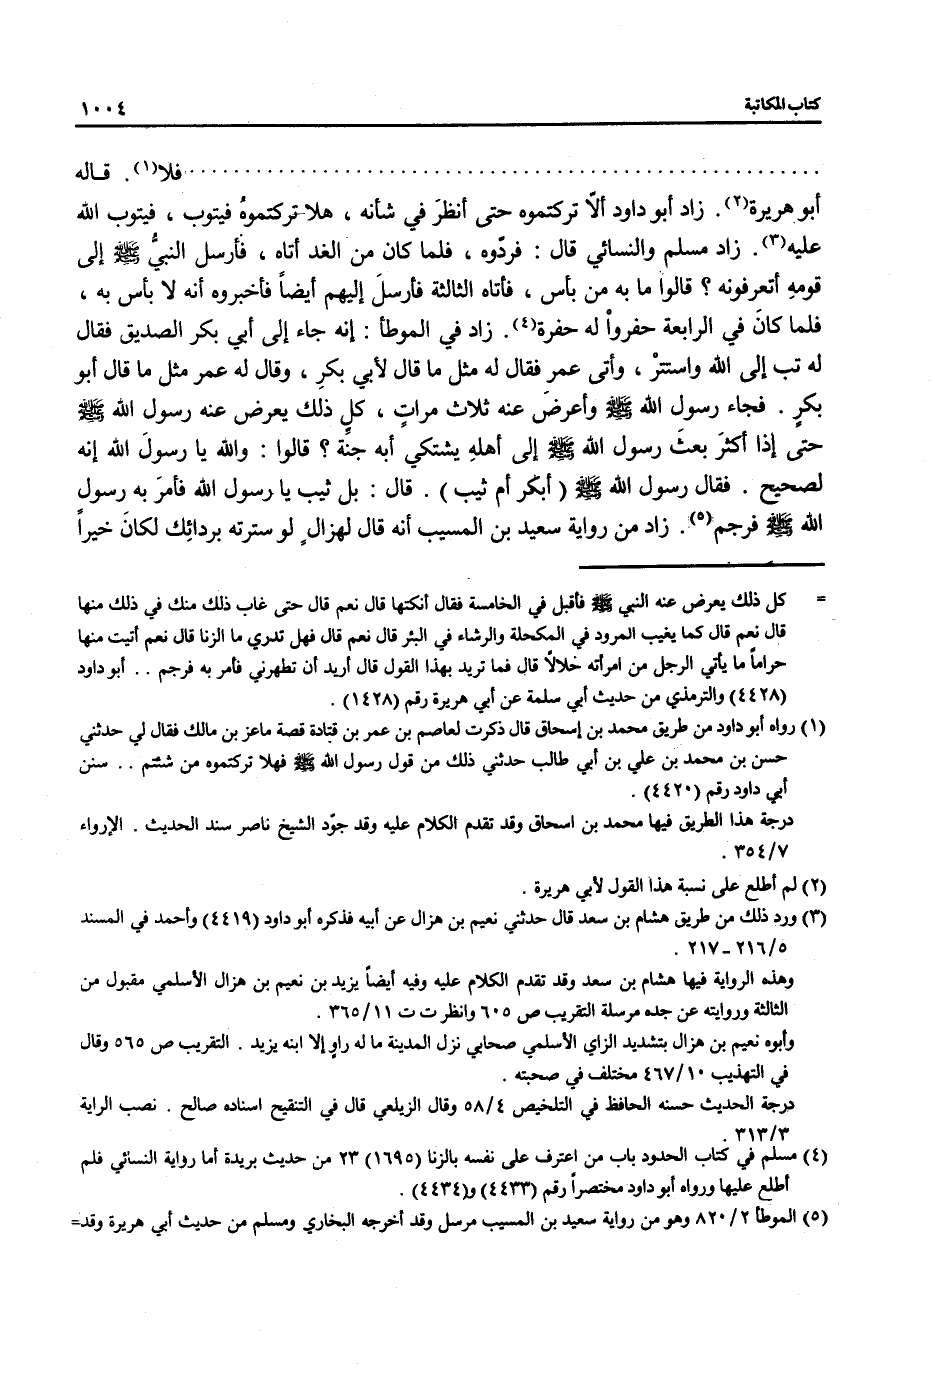 كتاب المكاتبة ١٠٠٤
........ فلا(١). قاله
أبو هريرة(٢). زاد أبو داود ألاّ تركتموه حتى أنظرَ في شأنه ، هلا تركتموهُ فيتوب ، فيتوب الله
عليه(٣). زاد مسلم والنسائي قال : فردّوه ، فلما كان من الغد أتاه ، فأرسل النبيُّ ﷺ إلى
قومهِ أتعرفونه ؟ قالوا ما به من بأس ، فأتاه الثالثة فأرسلَ إليهم أيضاً فأخبروه أنه لا بأس به ،
فلما كانَ في الرابعة حفرواْ له حفرة(٤). زاد في الموطأ : إنه جاء إلى أبي بكر الصديق فقال
له تب إلى الله واستترْ ، وأتى عمر فقال له مثل ما قال لأبي بكرِ ، وقال له عمر مثل ما قال أبو
بكرٍ . فجاء رسول الله ﷺ وأعرضَ عنه ثلاث مراتٍ ، كل ذلك يعرض عنه رسول الله ﷺ
حتى إذا أكثرَ بعثَ رسول الله ﷺ إلى أهلهِ يشتكي أبه جنة ؟ قالوا : والله يا رسولَ الله إنه
لصحيح . فقال رسول الله ﷺ ( أبكر أم ثيب ) . قال : بل ثيب يا رسول الله فأمرَ به رسول
الله ﷺ فرجم(٥). زاد من رواية سعيد بن المسيب أنه قال لهزالٍ لو سترته بردائِك لكانَ خيراً
= كل ذلك يعرض عنه النبي ﷺ فأقبل في الخامسة فقال أنكتها قال نعم قال حتى غاب ذلك منك في ذلك منها
قال نعم قال كما يغيب المرود في المكحلة والرشاء في البئر قال نعم قال فهل تدري ما الزنا قال نعم أتيت منها
حراماً ما يأتي الرجل من امرأته حلالاً قال فما تريد بهذا القول قال أريد أن تطهرني فأمر به فرجم .. أبو داود
(٤٤٢٨) والترمذي من حديث أبي سلمة عن أبي هريرة رقم (١٤٢٨) .
(١) رواه أبو داود من طريق محمد بن إسحاق قال ذكرت لعاصم بن عمر بن قتادة قصة ماعز بن مالك فقال لي حدثني
حسن بن محمد بن علي بن أبي طالب حدثني ذلك من قول رسول الله ﷺ فهلا تركتموه من شئتم .. سنن
أبي داود رقم (٤٤٢٠) .
درجة هذا الطريق فيها محمد بن اسحاق وقد تقدم الكلام عليه وقد جوّد الشيخ ناصر سند الحديث . الإرواء
٣٥٤/٧ .
(٢) لم أطلع على نسبة هذا القول لأبي هريرة .
(٣) ورد ذلك من طريق هشام بن سعد قال حدثني نعيم بن هزال عن أبيه فذكره أبو داود (٤٤١٩) وأحمد في المسند
٢١٦/٥ ـ ٢١٧ .
وهذه الرواية فيها هشام بن سعد وقد تقدم الكلام عليه وفيه أيضاً يزيد بن نعيم بن هزال الأسلمي مقبول من
الثالثة وروايته عن جده مرسلة التقريب ص ٦٠٥ وانظر ت ت ٣٦٥/١١ .
وأبوه نعيم بن هزال بتشديد الزاي الأسلمي صحابي نزل المدينة ما له راوٍ إلا ابنه يزيد . التقريب ص ٥٦٥ وقال
في التهذيب ٤٦٧/١٠ مختلف في صحبته .
درجة الحديث حسنه الحافظ في التلخيص ٥٨/٤ وقال الزيلعي قال في التنقيح اسناده صالح . نصب الراية
٣١٣/٣ .
(٤) مسلم في كتاب الحدود باب من اعترف على نفسه بالزنا (١٦٩٥) ٢٣ من حديث بريدة أما رواية النسائي فلم
أطلع عليها ورواه أبو داود مختصراً رقم (٤٤٣٣) و(٤٤٣٤) .
(٥) الموطأ ٨٢٠/٢ وهو من رواية سعيد بن المسيب مرسل وقد أخرجه البخاري ومسلم من حديث أبي هريرة وقد=